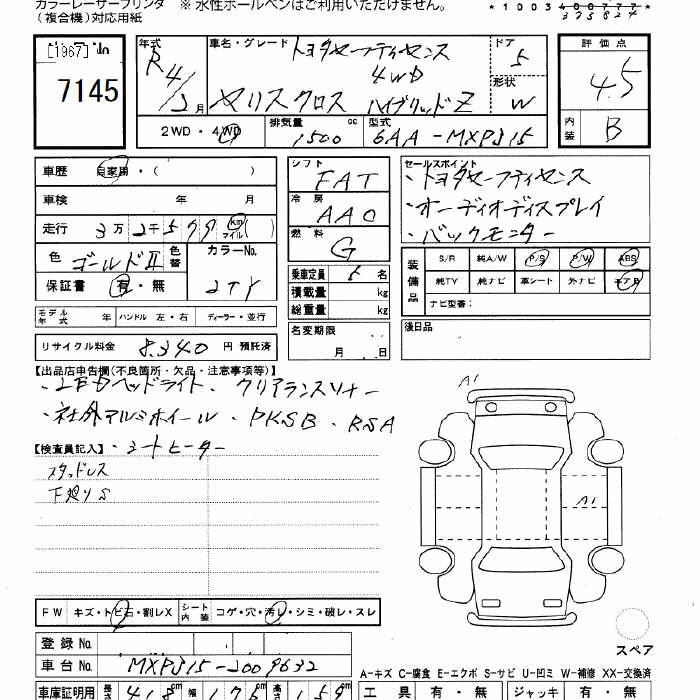 カラーレーザープリンタ ※ 水性ボールペンはご利用いただけません。
（複合機）対応用紙
*1003400777*
[1967]
7145
年式 R4/2月
車名・グレード トヨタセーフティセンス 4WD
ヤリスクロス ハイブリッドZ
ドア 5
形状 W
評価点 4.5
内装 B
2WD・4WD
排気量 1500 cc
型式 6AA-MXPJ15
車歴 自家用・( )
車検 年 月
走行 3万2千599 km マイル ( )
色 ゴールドII 色替
カラーNo. 2TY
保証書 有・無
モデル年式 年 ハンドル 左・右 ディーラー・並行
リサイクル料金 8,340 円 預託済
シフト FAT
冷房 AAC
燃料 G
乗車定員 5 名
積載量 kg
総重量 kg
名変期限 月 日
セールスポイント
・トヨタセーフティセンス
・オーディオディスプレイ
・バックモニター
装備品 S/R 純A/W P/S P/W ABS
純TV 純ナビ 革シート 外ナビ エアB
ナビ型番：
後日品
【出品店申告欄(不良箇所・欠品・注意事項等)】
・LEDヘッドライト・クリアランスソナー
・社外アルミホイール・PKSB・RSA
・シートヒーター
【検査員記入】
スタッドレス
下廻りS
A1
A1
スペア
FW キズ・トビ石・割レX シート内装 コゲ・穴・汚レ・シミ・破レ・スレ
登録No.
車台No. MXPJ15-2009632
A-キズ C-腐食 E-エクボ S-サビ U-凹ミ W-補修 XX-交換済
車庫証明用 長さ 418m 幅 176m 高さ 159m
工具 有・無 ジャッキ 有・無